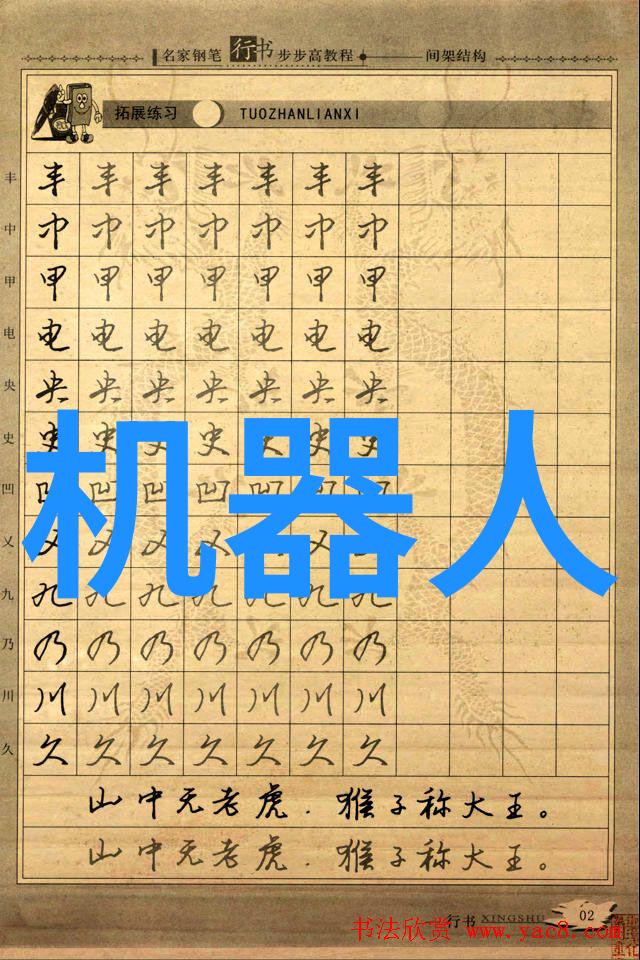 名家钢笔 行书 步步高教程 间架结构
拓展练习 TUOZHANLIANXI
丰 丰 丰 丰 丰 丰 丰 丰
中 中 中 中 中 中 中 中
甲 甲 甲 甲 甲 甲 甲 甲
电 电 电 电 电 电 电 电
央 央 央 央 央 央 央 央
史 史 史 史 史 史 史 史
凹 凹 凹 凹 凹 凹 凹 凹
机器人
乂 乂 乂 乂 乂 乂 乂 乂
九 九 九 九 九 九 九 九
乃 乃 乃 乃 乃 乃 乃 乃
川 川 川 川 川 川 川 川
久 久 久 久 久 久 久 久
山中无老虎.猴子称大王。
山中无老虎.猴子称大王。
行书 XINGSHU 02
书法欣赏 www.yac8.com